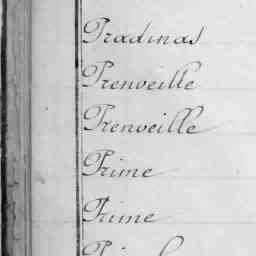 Pradinas
Prenveille
Prenveille
Prime
Prime